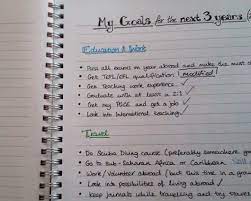 My Goals for the next 3 years
Education & Work
• Pass all exams on year abroad and make the most of
• Get TEFL/CFL qualification (modified)
• Get Teaching work experience
• Graduate with at least a 2:1 ✓
• Get my PGCE and get a job ✓
• Look into International teaching ✓
Travel
• Do Scuba Diving course (preferably somewhere
• Go to Sub-Saharan Africa or Caribbean
• Work/Volunteer abroad (but this time in a
• Look into possibilities of living abroad ✓
• Keep journals while travelling and try